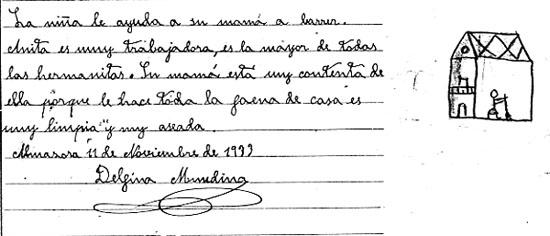 La niña le ayuda a su mamá a barrer.
Anita es muy trabajadora, es la mayor de todas
las hermanitas. Su mamá está uy contenta de
ella porque le hace toda la faena de casa es
muy limpia y my aseada.
Almasora 11 de Noviembre de 1993
Delfina Mundina